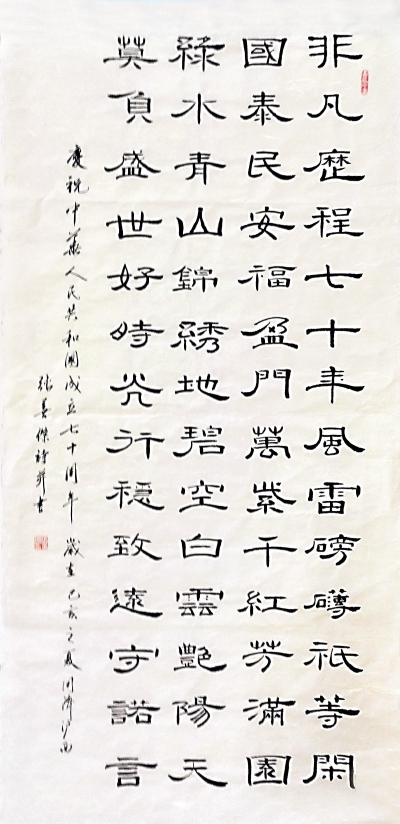 非凡歷程七十年風雷磅礴祇等閑
國泰民安福盈門萬紫千紅芳滿園
綠水青山錦綉地碧空白雲艷陽天
莫負盛世好時光行穩致遠守諾言
慶祝中華人民共和國成立七十周年 歲在己亥之夏同濟
張善傑詩并書